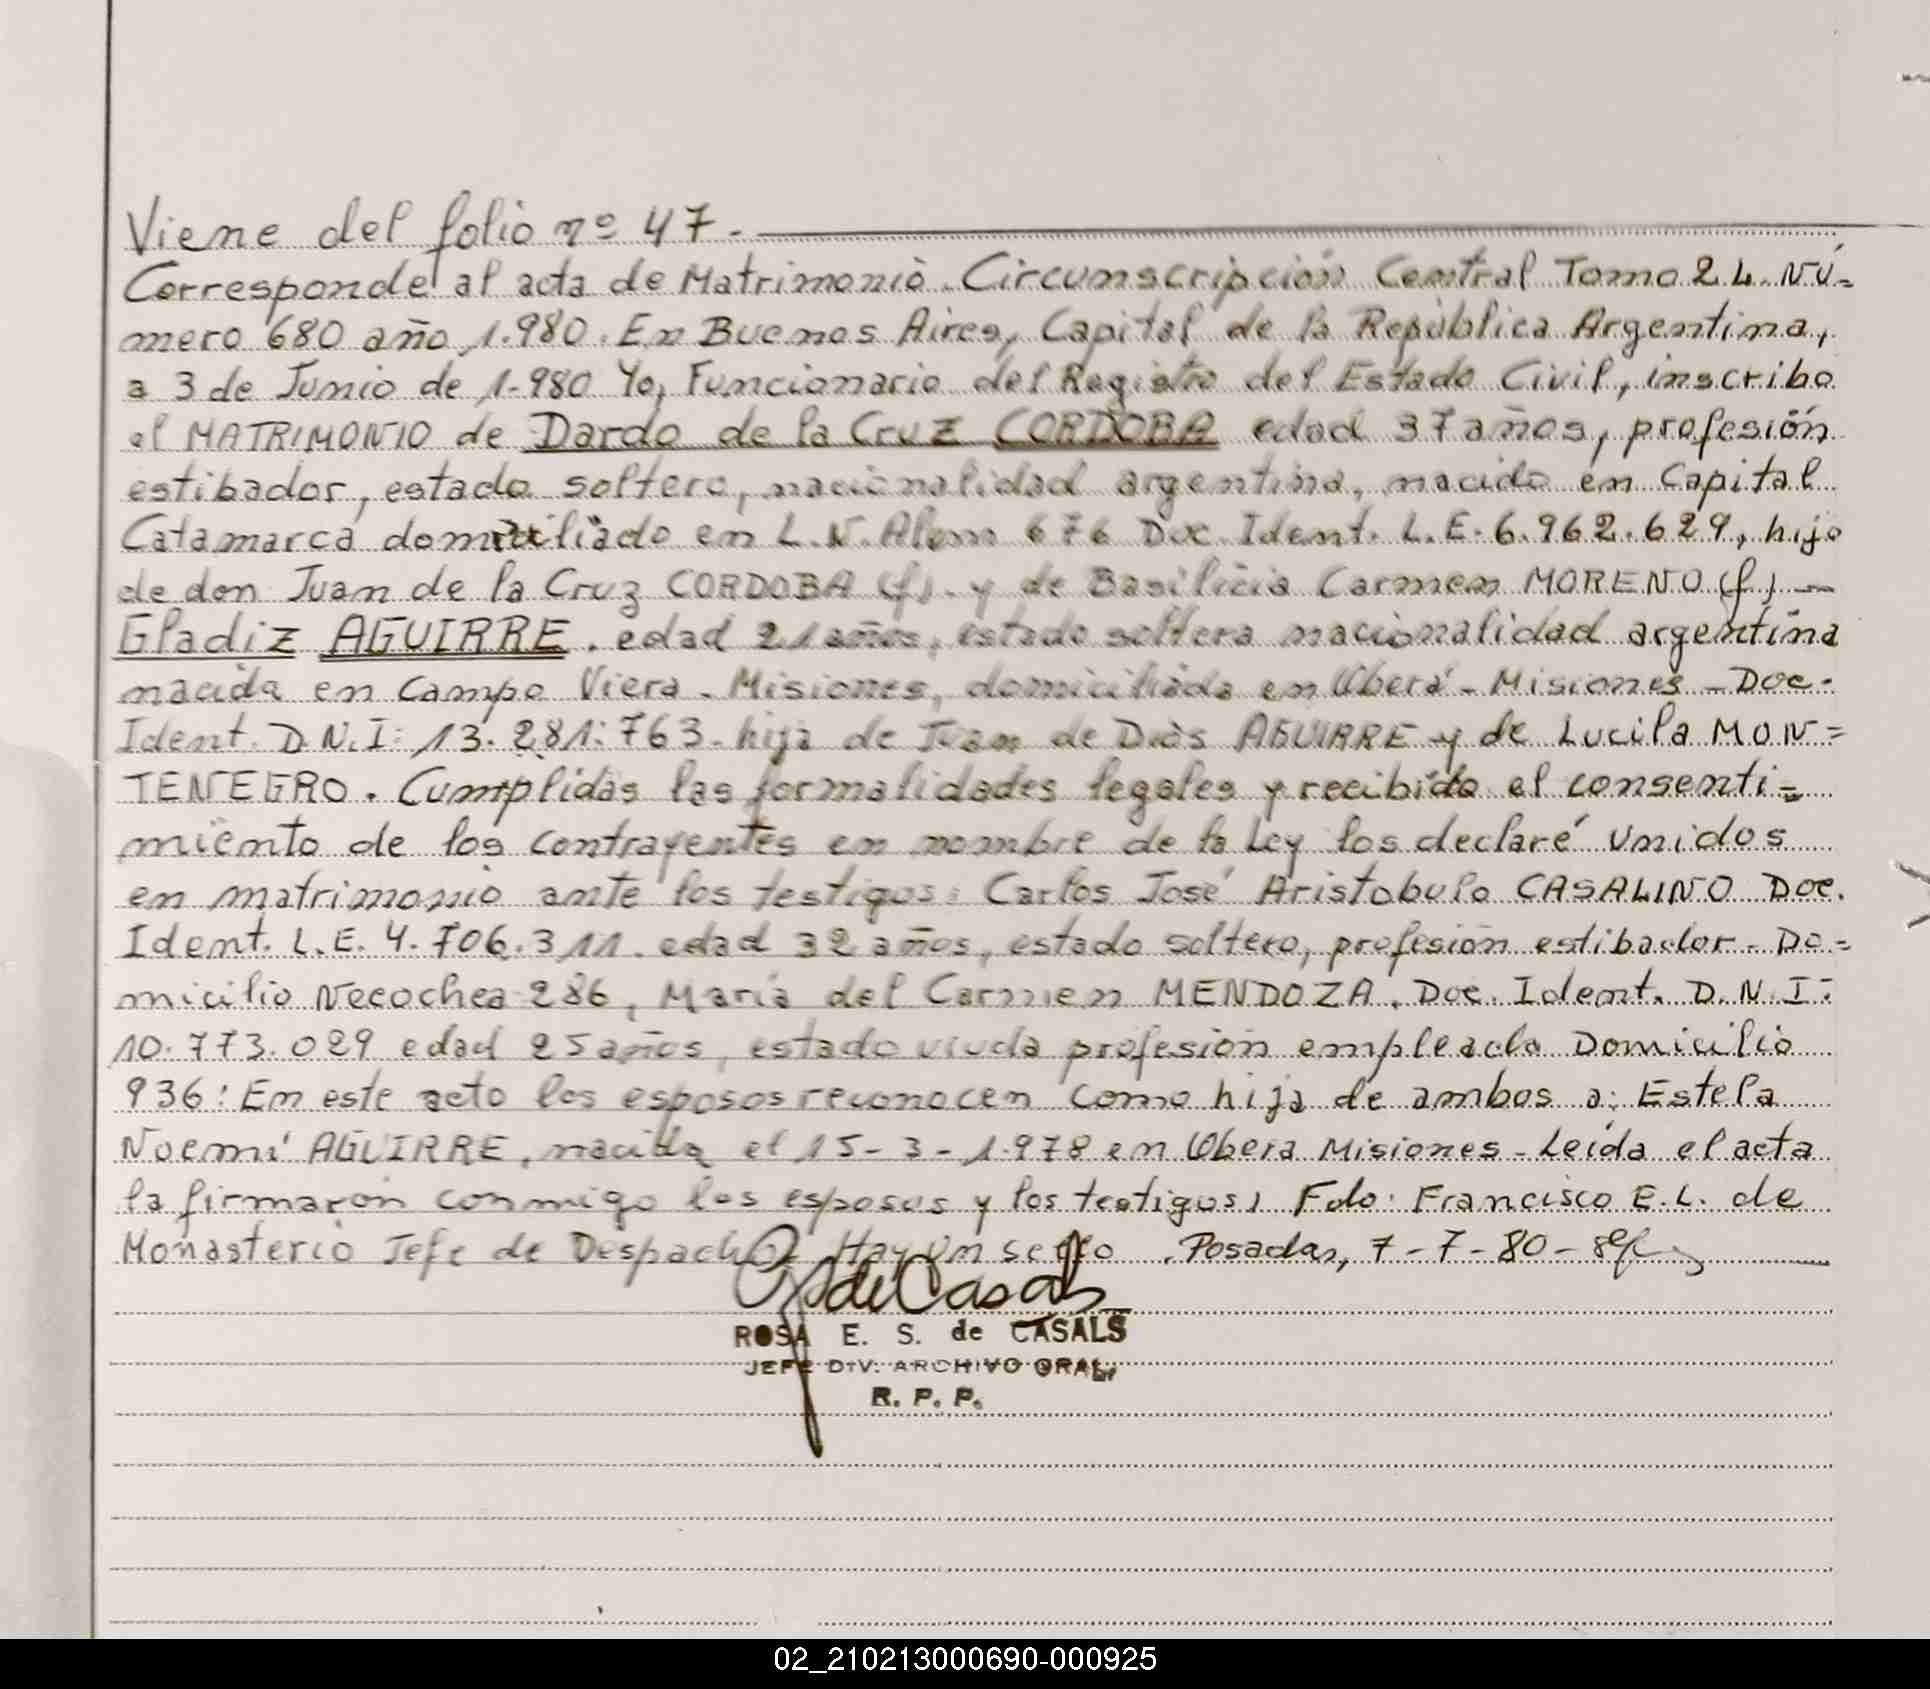 Viene del folio nº 47.
Corresponde al acta de Matrimonio. Circumscripción Central Tomo 2 L. Nú=
mero 680 año 1.980. En Buenos Aires, Capital de la República Argentina,
a 3 de Junio de 1.980 Yo, Funcionario del Registro del Estado Civil, inscribo
el MATRIMONIO de Dardo de la Cruz CORDOBA edad 37 años, profesión
estibador, estado soltero, nacionalidad argentina, nacido en Capital
Catamarca domiciliado en L.N. Alem 676 Doc. Ident. L.E. 6.962.629, hijo
de don Juan de la Cruz CORDOBA (f). y de Basilicia Carmen MORENO (f) —
Gladiz AGUIRRE. edad 21 años, estado soltera nacionalidad argentina
nacida en Campo Viera - Misiones, domiciliada en Oberá - Misiones - Doc.
Ident. D.N.I: 13.281.763. hija de Juan de Dios AGUIRRE y de Lucila MON=
TENEGRO. Cumplidas las formalidades legales y recibido el consenti=
miento de los contrayentes en nombre de la Ley los declaré unidos
en matrimonio ante los testigos: Carlos José Aristobulo CASALINO Doc.
Ident. L.E. 4.706.311. edad 32 años, estado soltero, profesión estibador - Do=
micilio Necochea 286, María del Carmen MENDOZA. Doc. Ident. D.N.I:
10.773.029 edad 25 años, estado viuda profesión empleada Domicilio
936: En este acto los esposos reconocen como hija de ambos a: Estela
Noemí AGUIRRE, nacida el 15-3-1.978 en Oberá Misiones - Leída el acta
la firmaron conmigo los esposos y los testigos) Fdo: Francisco E.L. de
Monasterio Jefe de Despacho - Hay un sello. Posadas, 7-7-80-
de Casals
ROSA E. S. de CASALS
JEFE DIV. ARCHIVO GRAL.
R. P. P.
02_210213000690-000925